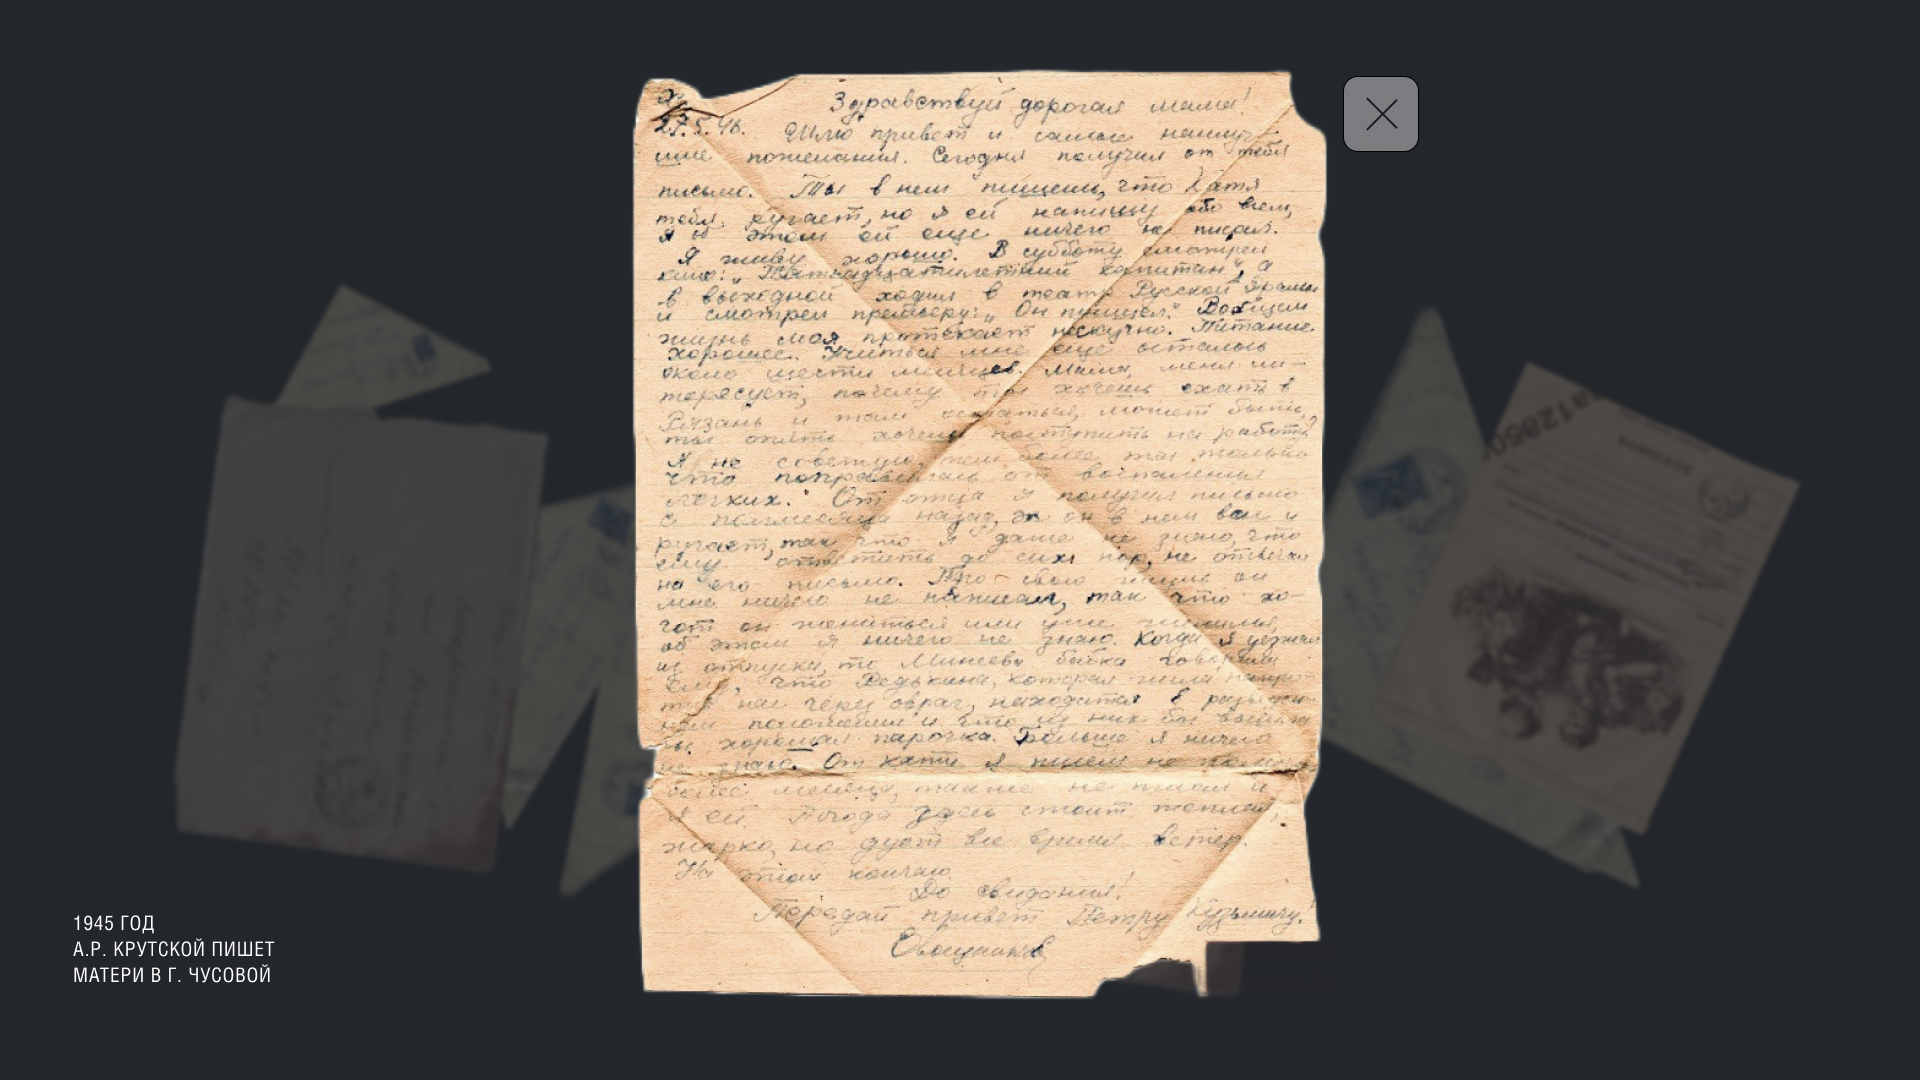 27.5.46.
Здравствуй дорогая мама!
Шлю привет и самые наилуч-
шие пожелания. Сегодня получил от тебя
письмо. Ты в нем пишешь, что Катя
тебя ругает, но я ей напишу обо всем,
я об этом ей еще ничего не писал.
Я живу хорошо. В субботу смотрел
кино: „Пятнадцатилетний капитан“, а
в выходной ходил в театр Русской Драмы
и смотрел премьеру: „Он пришел.“ Вобщем
жизнь моя протекает нескучно. Питание
хорошее. Учиться мне еще осталось
около шести месяцев. Мама, меня ин-
тересует, почему ты хочешь ехать в
Рязань и там остаться, может быть,
ты опять хочешь поступить на работу?
Я не советую, тем более ты только
что поправилась от воспаления
легких. От отца я получил письмо
с полмесяца назад, он в нем вас и
ругает, так что я даже не знаю, что
ему ответить до сих пор, не отвечаю
на его письмо. Про свою жизнь он
мне ничего не написал, так что хо-
чет он жениться или уже женился,
об этом я ничего не знаю. Когда я уезжал
из отпуска, то бабка говорила
ему, что Редькина, которая жила напро-
тив нас через овраг, находится в
положении и что из них бы вышла
бы хорошая парочка. Больше я ничего
не знаю. От Кати я писем не
более месяца, также не писал и
я ей. Погода здесь стоит теплая,
жарко, но дует все время ветер.
На этом кончаю.
До свидания!
Передай привет Петру Кузьмичу!
1945 ГОД
А.Р. КРУТСКОЙ ПИШЕТ
МАТЕРИ В Г. ЧУСОВОЙ